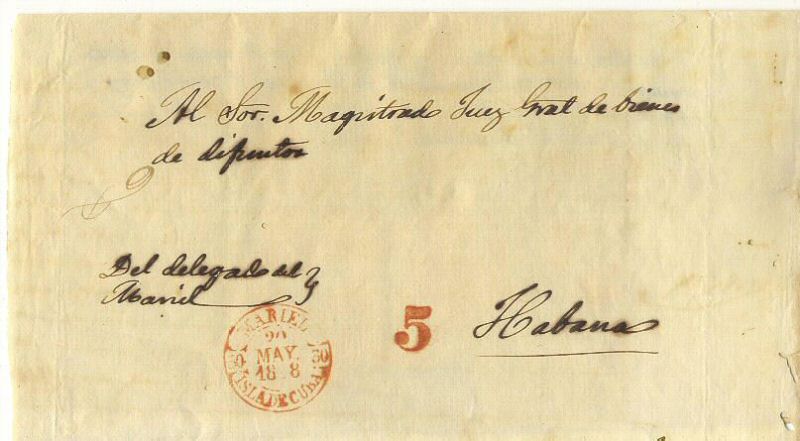 Al Sor. Magistrado Juez Gral de bienes
de difuntos
Del delegado del
Mariel
Habana
5
MARIEL
20
MAY.
18 8
ISLA DE CUBA